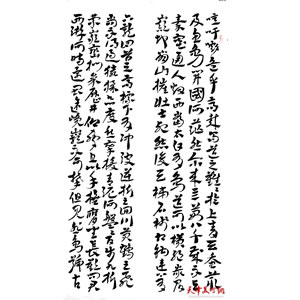 噫吁嚱危乎高哉蜀道之難難於上青天蠶叢
及魚鳧開國何茫然爾來四萬八千歲不與
秦塞通人煙西當太白有鳥道可以橫絕峨眉
巔地崩山摧壯士死然後天梯石棧相鉤連上有
六龍回日之高標下有衝波逆折之回川黃鶴之飛
尚不得過猿猱欲度愁攀援青泥何盤盤百步九折
縈巖巒捫參歷井仰脅息以手撫膺坐長歎問君
西遊何時還畏途巉巖不可攀但見悲鳥號古